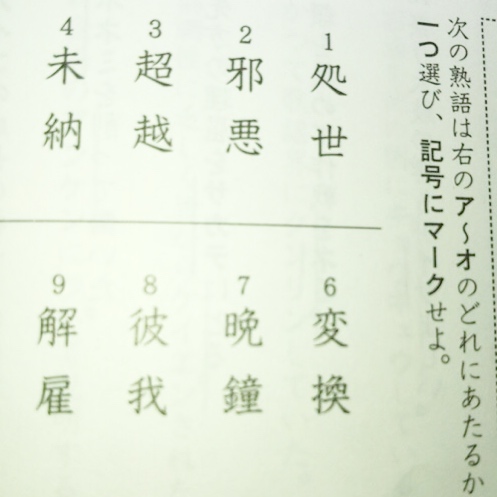 次の熟語は右のア～オのどれにあたるか
一つ選び、記号にマークせよ。
1 処世
2 邪悪
3 超越
4 未納
6 変換
7 晩鐘
8 彼我
9 解雇